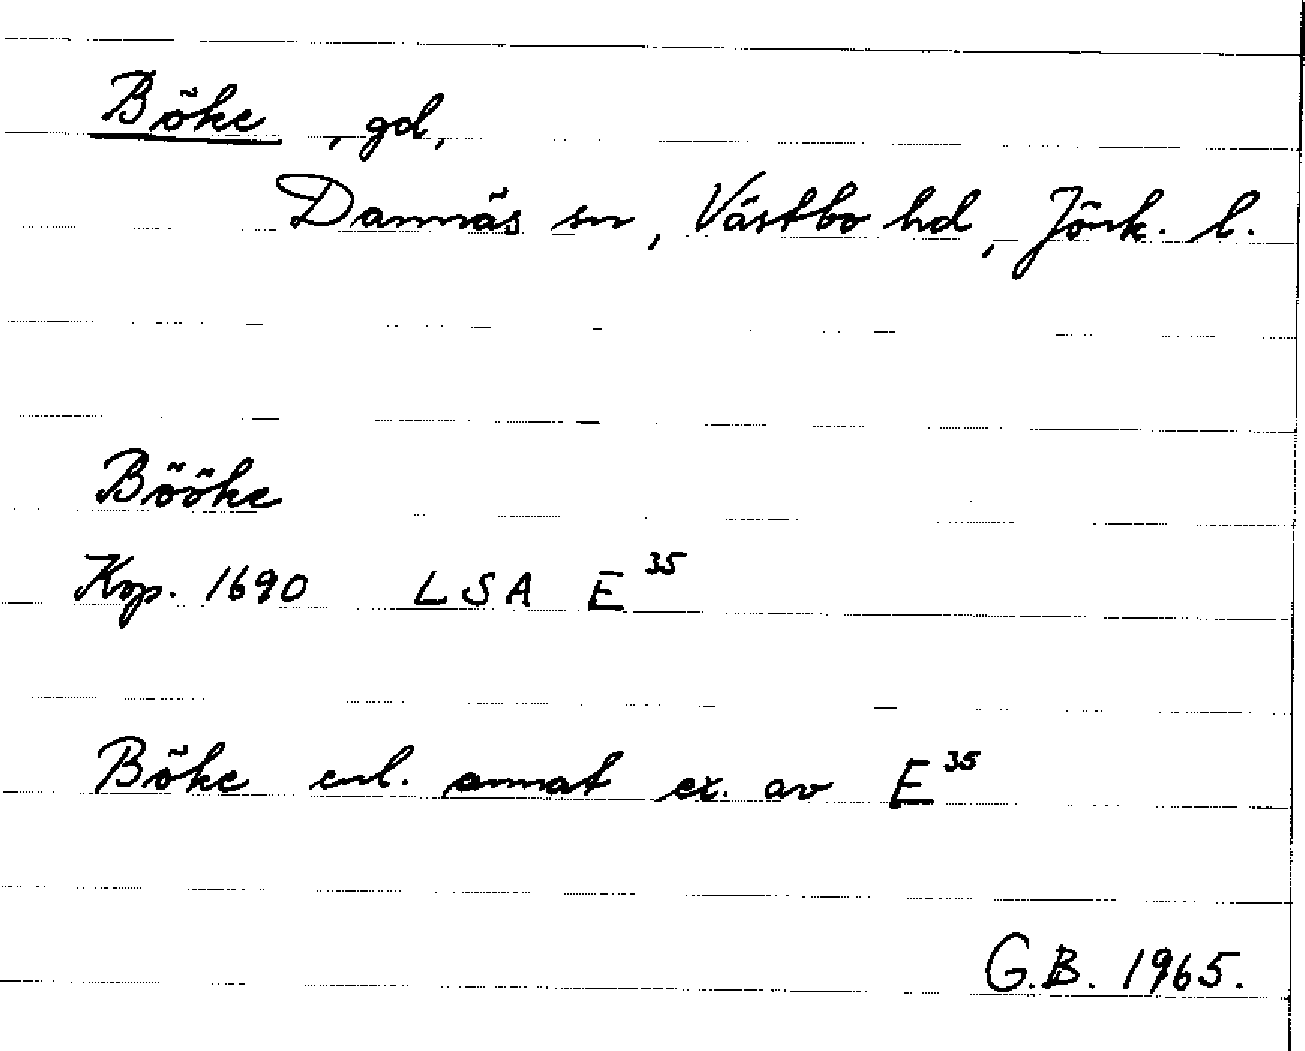 Böke, gd,
Dannäs sn, Västbo hd, Jönk. l.
Bööke
Kop. 1690 LSA E³⁵
Böke enl. annat ex. av E³⁵
G.B. 1965.